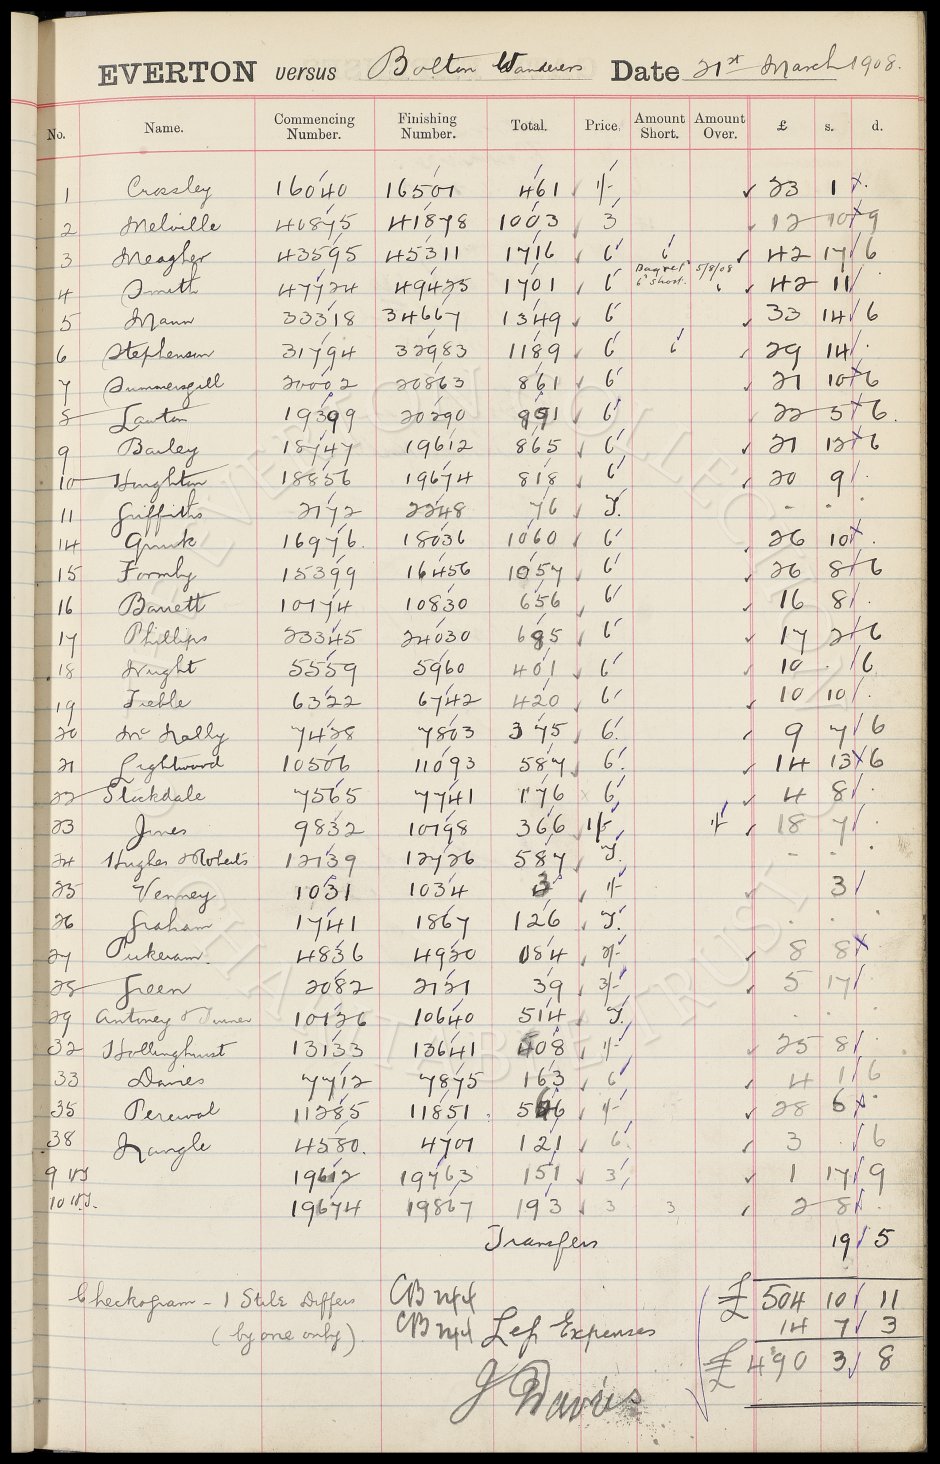 EVERTON versus Bolton Wanderers Date 21st March 1908.
No. Name. Commencing Number. Finishing Number. Total. Price. Amount Short. Amount Over. £ s. d.
1 Crossley 16040 16501 461 1/- 23 1 .
2 Melville 40875 41878 1003 3 12 10 9
3 Meagher 43595 45311 1716 6 6 42 17 6
4 Smith 47724 49425 1701 6 6d short. 5/8/08 6 42 11
5 Mann 33318 34667 1349 6 33 14 6
6 Stephenson 31794 32983 1189 6 6 29 14 .
7 Summersgill 20002 20863 861 6 21 10 6
8 Lawton 19399 20290 891 6 22 5 6.
9 Bailey 18747 19612 865 6 21 12 6
10 Houghton 18856 19674 818 6 20 9 .
11 Griffiths 2172 2248 76 T. - - .
14 Quirk 16976. 18036 1060 6 26 10 .
15 Formby 15399 16456 1057 6 26 8 6
16 Barrett 10174 10830 656 6 16 8 .
17 Phillips 23345 24030 685 6 17 2 6
18 Wright 5559 5960 401 6 10 . 6
19 Treble 6322 6742 420 6 10 10 .
20 McNally 7428 7803 375 6. 9 7 6
21 Lightwood 10506 11093 587 6. 14 13 6
22 Stockdale 7565 7741 176 6 4 8 .
23 Jones 9832 10198 366 1/- 1/- 18 7 .
24 Hughes & Roberts 12139 12726 587 T. - - .
25 Venney 1031 1034 3 1/- 3
26 Graham 1741 1867 126 T. . . .
27 4836 4920 084 2/- 8 8
28 Green 2082 2121 39 3/- 5 17 .
29 Antoney & Turner 10126 10640 514 T. . . .
32 Hollinghurst 13133 13641 508 1/- 25 8 .
33 Davies 7712 7875 163 6 4 1 6
35 Percival 11285 11851 566 1/- 28 6 .
38 Nangle 4580. 4701 121 6. 3 . 6
9 19612 19763 151 3 1 17 9
10 19674 19867 193 3 3 2 8 .
Transfers 19 5
£ 504 10 11
Checkogram - 1 Stile Differs
(by one only).
Less Expenses 14 7 3
£ 490 3 8
J Davies
EVERTON COLLECTION
CHARITABLE TRUST